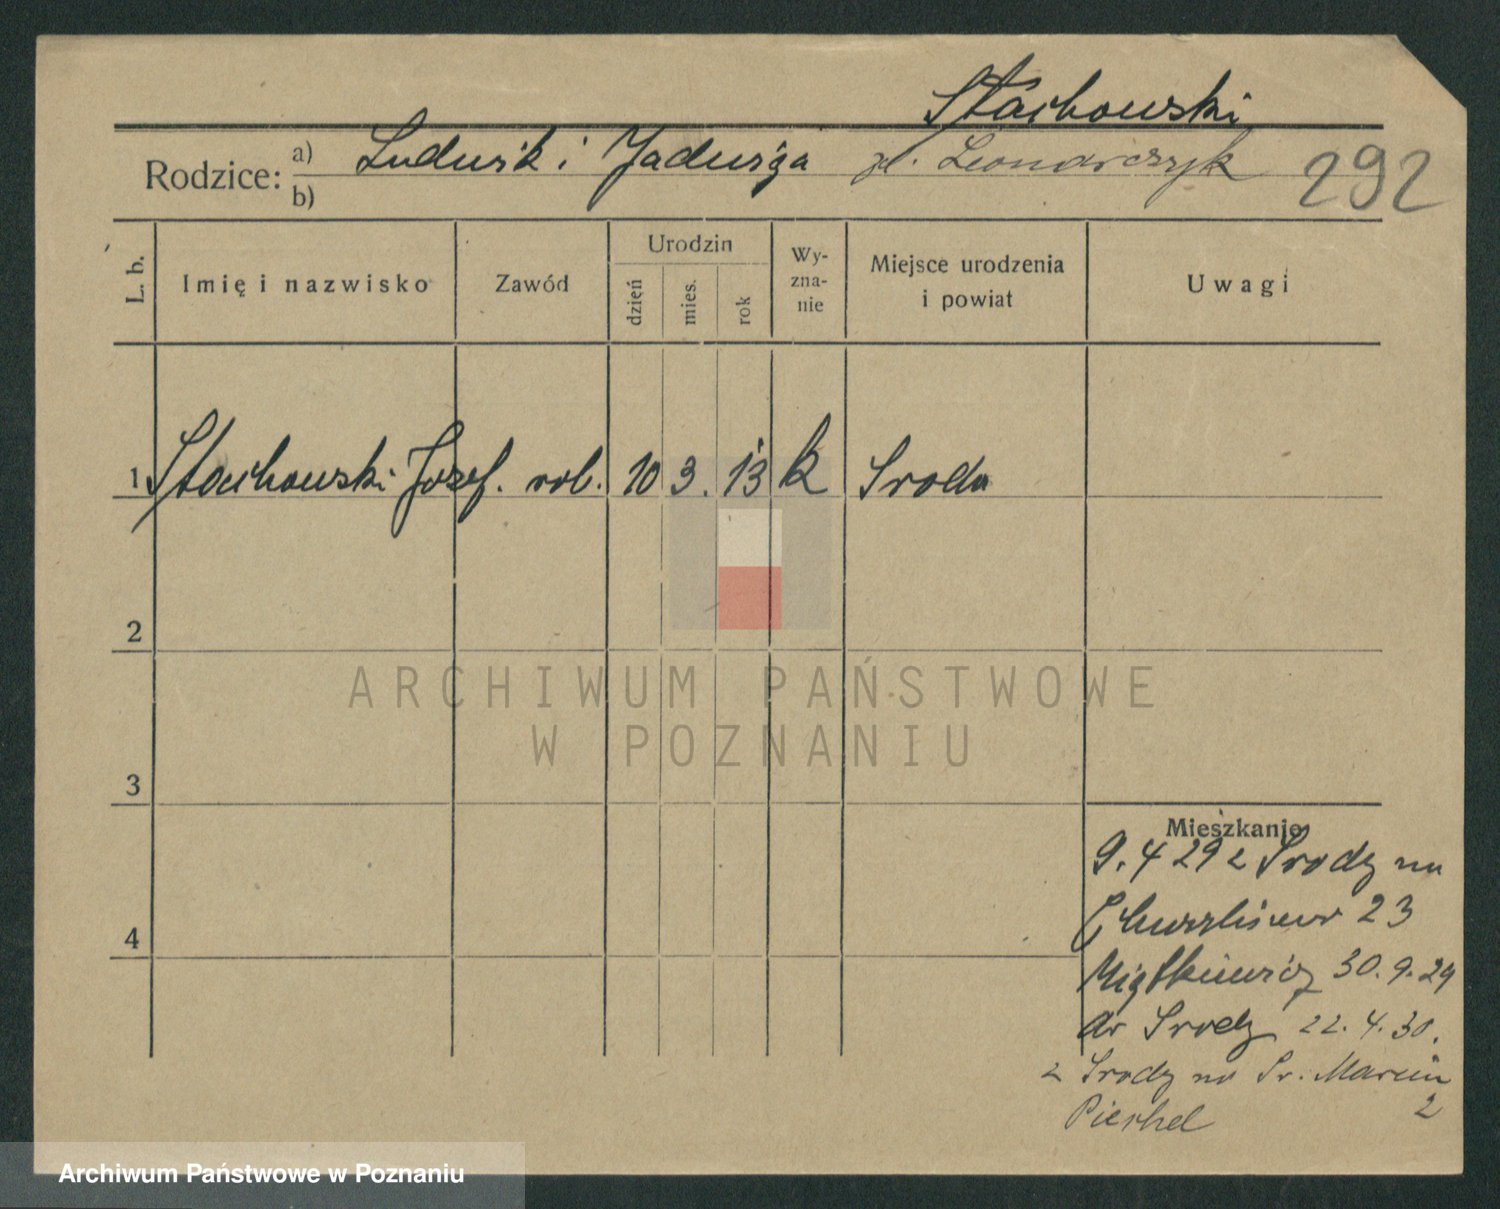 Stachowski
Rodzice: a) Ludwik i Jadwiga zd. Leonarczyk 292
b)
L. b. Imię i nazwisko Zawód Urodzin dzień mies. rok Wy-zna-nie Miejsce urodzenia i powiat Uwagi
1 Stachowski Józef. rob. 10 3. 13 k Sroda
2
ARCHIWUM PAŃSTWOWE
W POZNANIU
3
Mieszkanie
9. 4 29 z Srody na
23
4
30. 9. 29
do Srody 22. 4. 30.
z Srody na Sr. Marcin
2
Archiwum Państwowe w Poznaniu